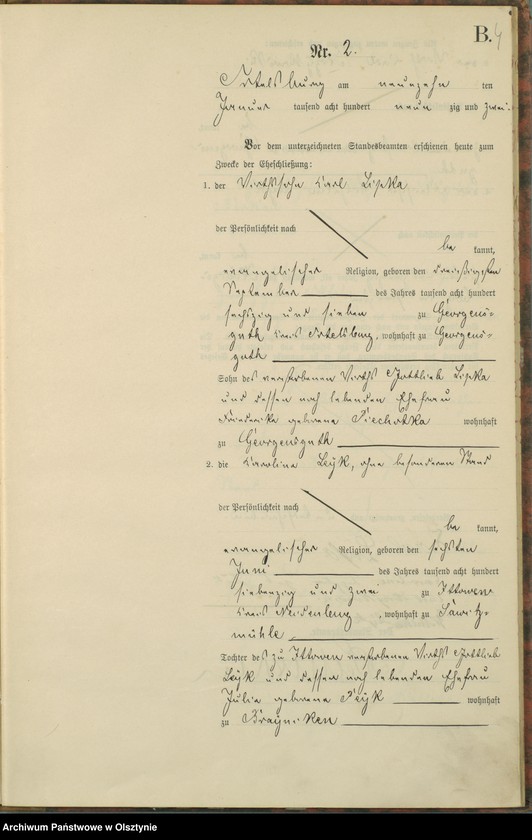 B. 4
Nr. 2.
Ortelsburg am neunzehn ten
Januar tausend acht hundert neun zig und zwei.
Vor dem unterzeichneten Standesbeamten erschienen heute zum
Zwecke der Eheschließung:
1. der Wirthssohn Carl Lipka
der Persönlichkeit nach
be kannt,
evangelischer Religion, geboren den dreißigsten
September des Jahres tausend acht hundert
sechszig und sieben zu Georgens-
guth Kreis Ortelsburg, wohnhaft zu Georgens-
guth
Sohn des verstorbenen Wirths Gottlieb Lipka
und dessen noch lebenden Ehefrau
Friederike geborene Piechottka wohnhaft
zu Georgensguth
2. die Caroline Leyk, ohne besonderen Stand
der Persönlichkeit nach
be kannt,
evangelischer Religion, geboren den sechsten
Juni des Jahres tausend acht hundert
siebenzig und zwei zu Ittowen
Kreis Neidenburg, wohnhaft zu Sawitz-
mühle
Tochter des zu Ittowen verstorbenen Wirths Gottlieb
Leyk und dessen noch lebenden Ehefrau
Julie geborene wohnhaft
zu
Archiwum Państwowe w Olsztynie